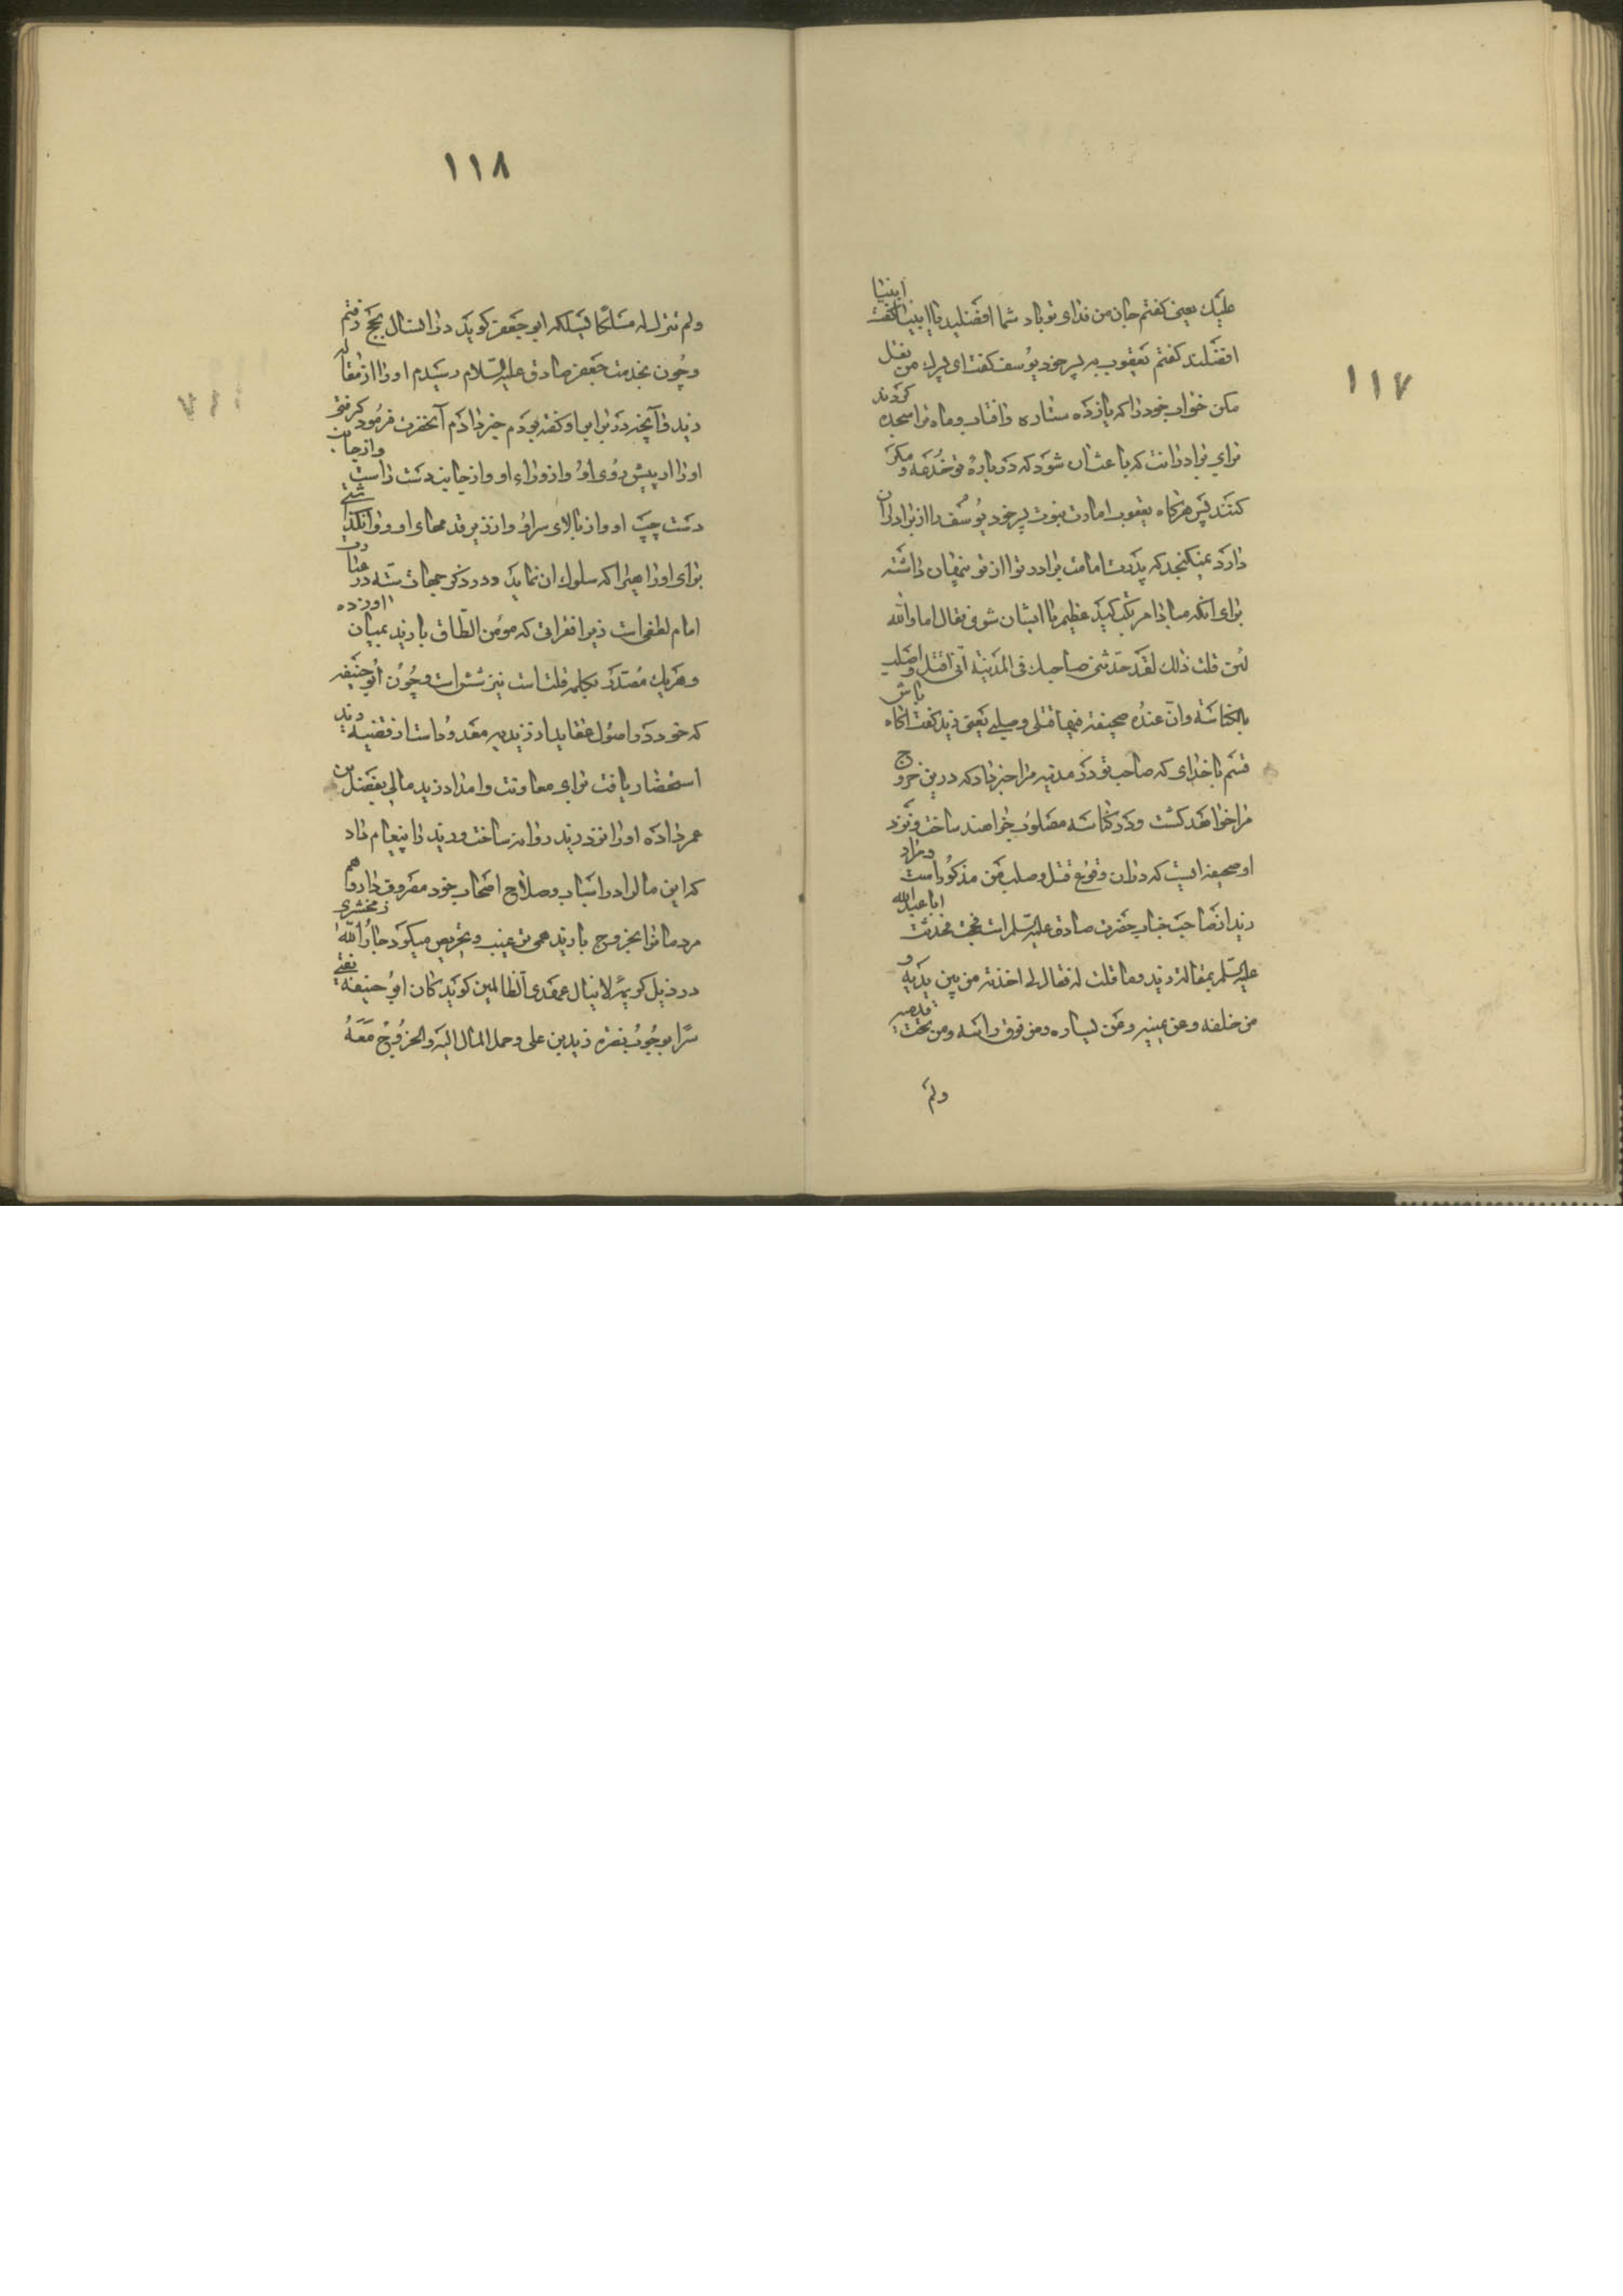 ۱۱۷
علیک یعنی کفتم جان من فدای تو باد شما افضلید یا انبیا کفت انبیا
افضلند کفتم یعقوب به پسر خود یوسف کفت ای پسرک من نقل
مکن خواب خود را که یازده ستاره و افتاب و ماه ترا سجده کردند
برای برادرانت که باعث ان شود که در باره تو خدعه و مکر
کنند پس هرکاه یعقوب امارت نبوت پسر خود یوسف را از برادران
دارد نمیکنجد که پدرت امامت برادر ترا از تو پنهان داشته
برای انکه مبادا مرتکب کید عظیم با ایشان شوی فقال اما والله
لئن قلت ذلک لقد حدثنی صاحبک فی المدینة انی اقتل و اصلب
بالکناسة وان عنده صحیفة فیها قتلی وصلبی یعنی زید کفت اکاه باش
قسم با خدای که صاحب تو در مدینه مرا خبر داد که درین خروج
مرا خواهند کشت و در کناسه مصلوب خواهند ساخت و نزد
او صحیفه ایست که دران وقوع قتل و صلب من مذکور است و مراد
زید از صاحب جناب حضرت صادق علیه السلم است فحججت فحدثت ابا عبدالله
علیه السلم بمقالة زید وما قلت له فقال لی اخذته من بین یدیه و
من خلفه وعن یمینه وعن یساره ومن فوق راسه ومن تحت قدمیه
ولم
۱۱۸
ولم تترک له مسلکا یسلکه ابو جعفر کوید دران سال بحج رفتم
و چون بخدمت جعفر صادق علیه السلام رسیدم او را از مقاله
زید و آنچه در برابر او کفته بودم خبر دادم آنحضرت فرمود کرفتی
او را از پیش روی او و از وراء او و از جانب دست راست و از جانب
دست چپ او و از بالای سر او و از زیر قدمهای او و وانکذاشتی
برای او راهی را که سلوک ان نماید و در ذکر جهات سته در عبارت
امام لطفی است زیرا فقراتی که مومن الطاق با زید بمیان اورده
و هریک مصدر بکلمه قلت است نیز شش است و چون ابو حنیفه
که خود در اصول عقاید از زیدیه معدود است از قضیه زید
استحضار یافت برای معاونت و امداد زید مالی بفضل بن
عمر داده او را نزد زید روانه ساخت و زید را پیغام داد
که این مال را در اسباب و صلاح اصحاب خود مصروف دار و هم
مردمان را بخروج با زید همی ترغیب و تحریص میکرد جار الله زمخشری
در ذیل کریمه لاینال عهدی الظالمین کوید کان ابو حنیفه یفتی
سرا بوجوب نصره زید بن علی و حمل المال الیه و الخروج معه